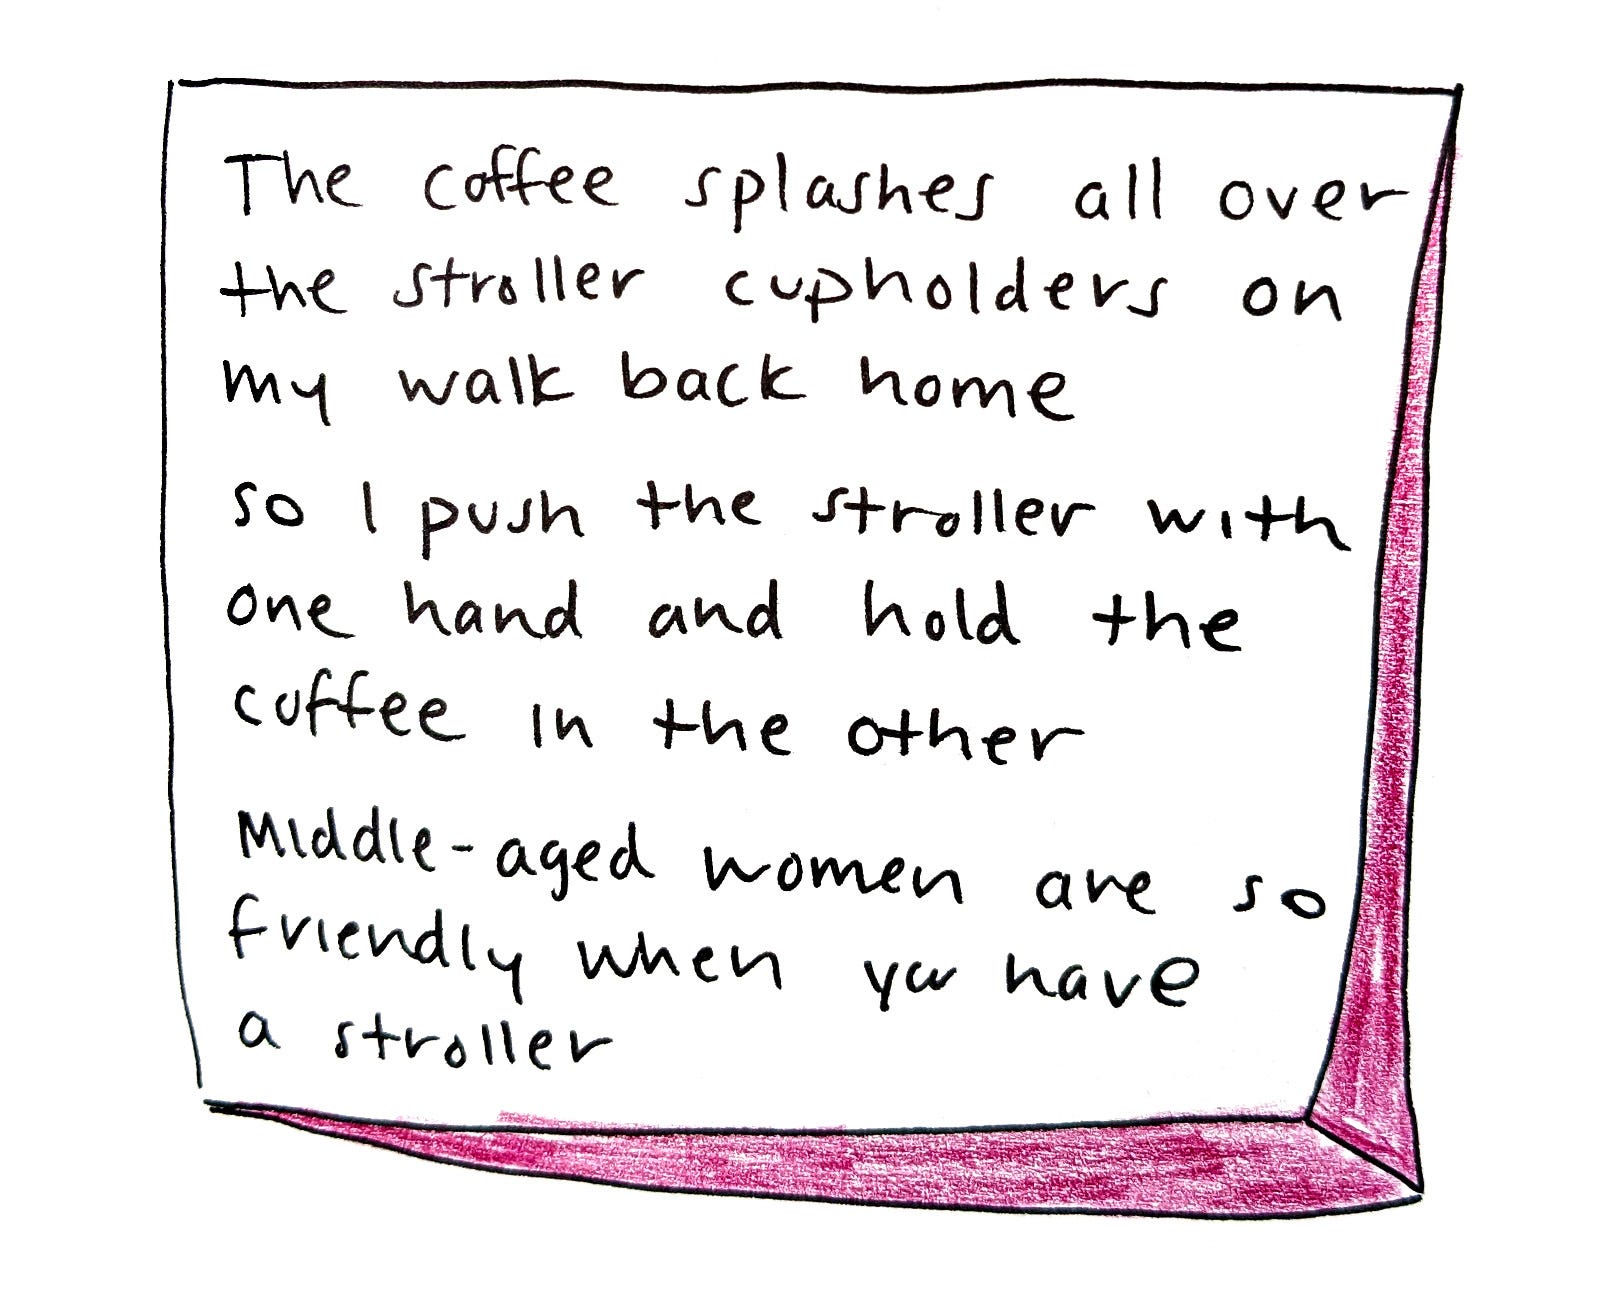 The coffee splashes all over
the stroller cupholders on
my walk back home
so I push the stroller with
one hand and hold the
coffee in the other
Middle-aged women are so
friendly when you have
a stroller